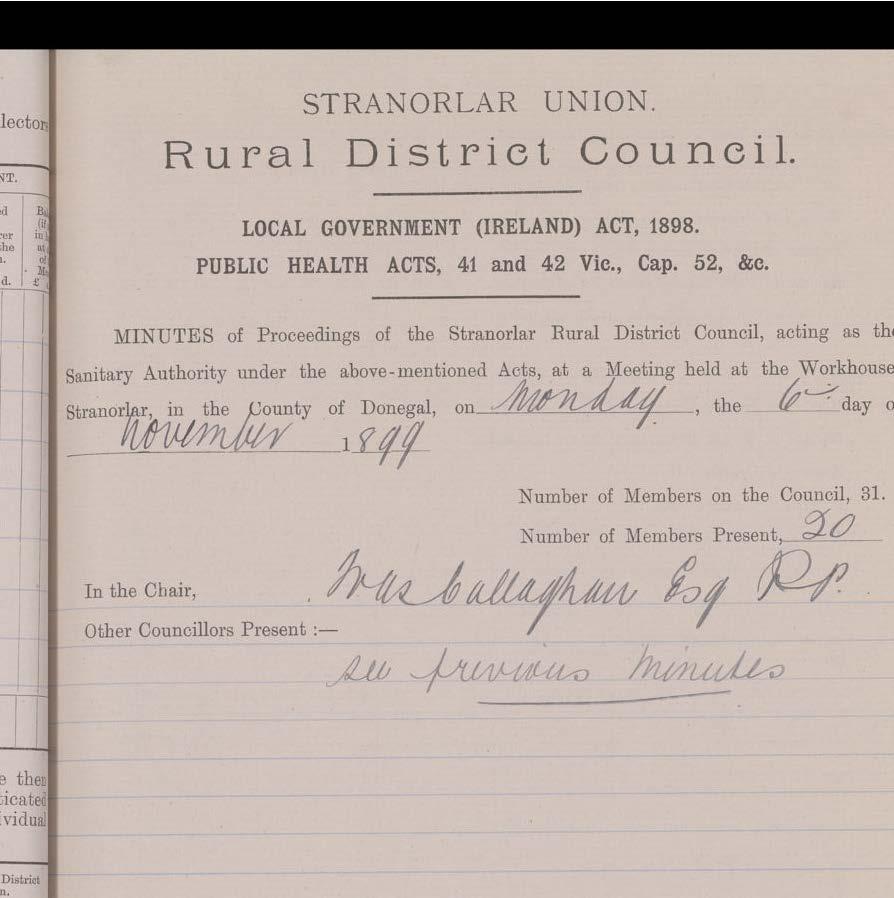 lector
NT.
d
er
he
n.
d.
£
STRANORLAR UNION.
Rural District Council.
LOCAL GOVERNMENT (IRELAND) ACT, 1898.
PUBLIC HEALTH ACTS, 41 and 42 Vic., Cap. 52, &c.
MINUTES of Proceedings of the Stranorlar Rural District Council, acting as the
Sanitary Authority under the above-mentioned Acts, at a Meeting held at the Workhouse
Stranorlar, in the County of Donegal, on Monday, the 6th day o
November 1899
Number of Members on the Council, 31.
Number of Members Present, 20
In the Chair, Callaghan Esq
Other Councillors Present :—
see previous minutes
e then
ticated
vidual
District
n.